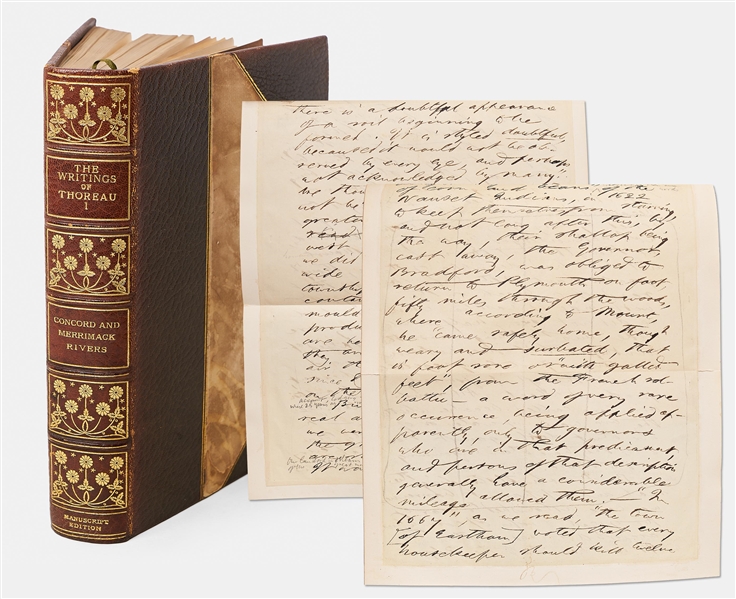 THE
WRITINGS
OF
THOREAU
I
CONCORD AND
MERRIMACK
RIVERS
MANUSCRIPT
EDITION
there is a doubtful appearance
of a soil beginning to be
formed. It is styled doubtful,
because it would not be ob-
served by every eye, and perhaps
not acknowledged by many"
not be
greater
read
west
we did
wide
mould
since
on the
real
we
the
of corn and of the
Nauset Indians, in 1622
to keep themselves from starving,
and not long after this, by
the way, their shallop being
cast away, the Governor
Bradford, was obliged to
return to Plymouth on foot
fifty miles through the woods,
where according to Mourt,
he "came safely home, though
weary and surbated," that
is foot sore or "with galled
feet", from the French sol-
batu — a word of very rare
occurrence being applied ap-
parently only to governors
who are in that predicament,
and persons of that description
generally have a considerable
mileage allowed them. — "In
1667" as we read, "the town
[of Eastham] voted that every
housekeeper should kill twelve